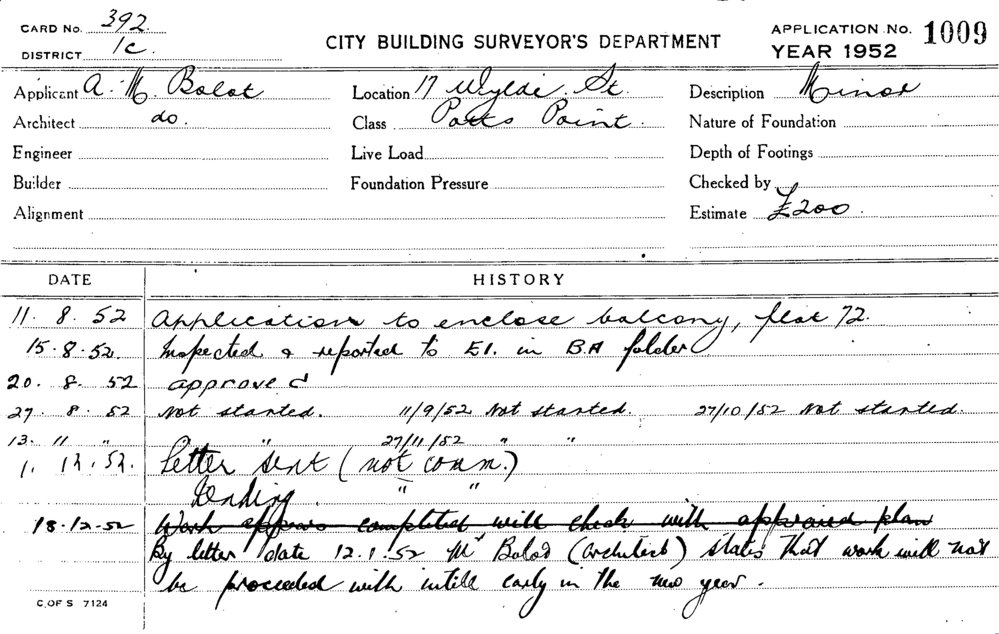 CARD No. 392.
DISTRICT 1c.
CITY BUILDING SURVEYOR'S DEPARTMENT
APPLICATION No. 1009
YEAR 1952
Applicant A. M. Bolot Location 17 Wylde St. Description Minor
Architect do. Class Potts Point. Nature of Foundation
Engineer Live Load Depth of Footings
Builder Foundation Pressure Checked by
Alignment Estimate £200.
DATE HISTORY
11. 8. 52 Application to enclose balcony, flat 72.
15.8.52. Inspected & reported to E1. in B.A folder
20. 8. 52 approved
27. 8. 52 Not started. 11/9/52 Not started. 27/10/52 Not started.
13. 11 " " 27/11/52 " "
1. 12. 52. Letter sent (not comm.)
Pending. " "
18.12.52 Work appears completed will check with approved plan
By letter date 12.1.52 Mr Bolot (architect) states that work will not
be proceeded with intill early in the new year.
C. OF S 7124